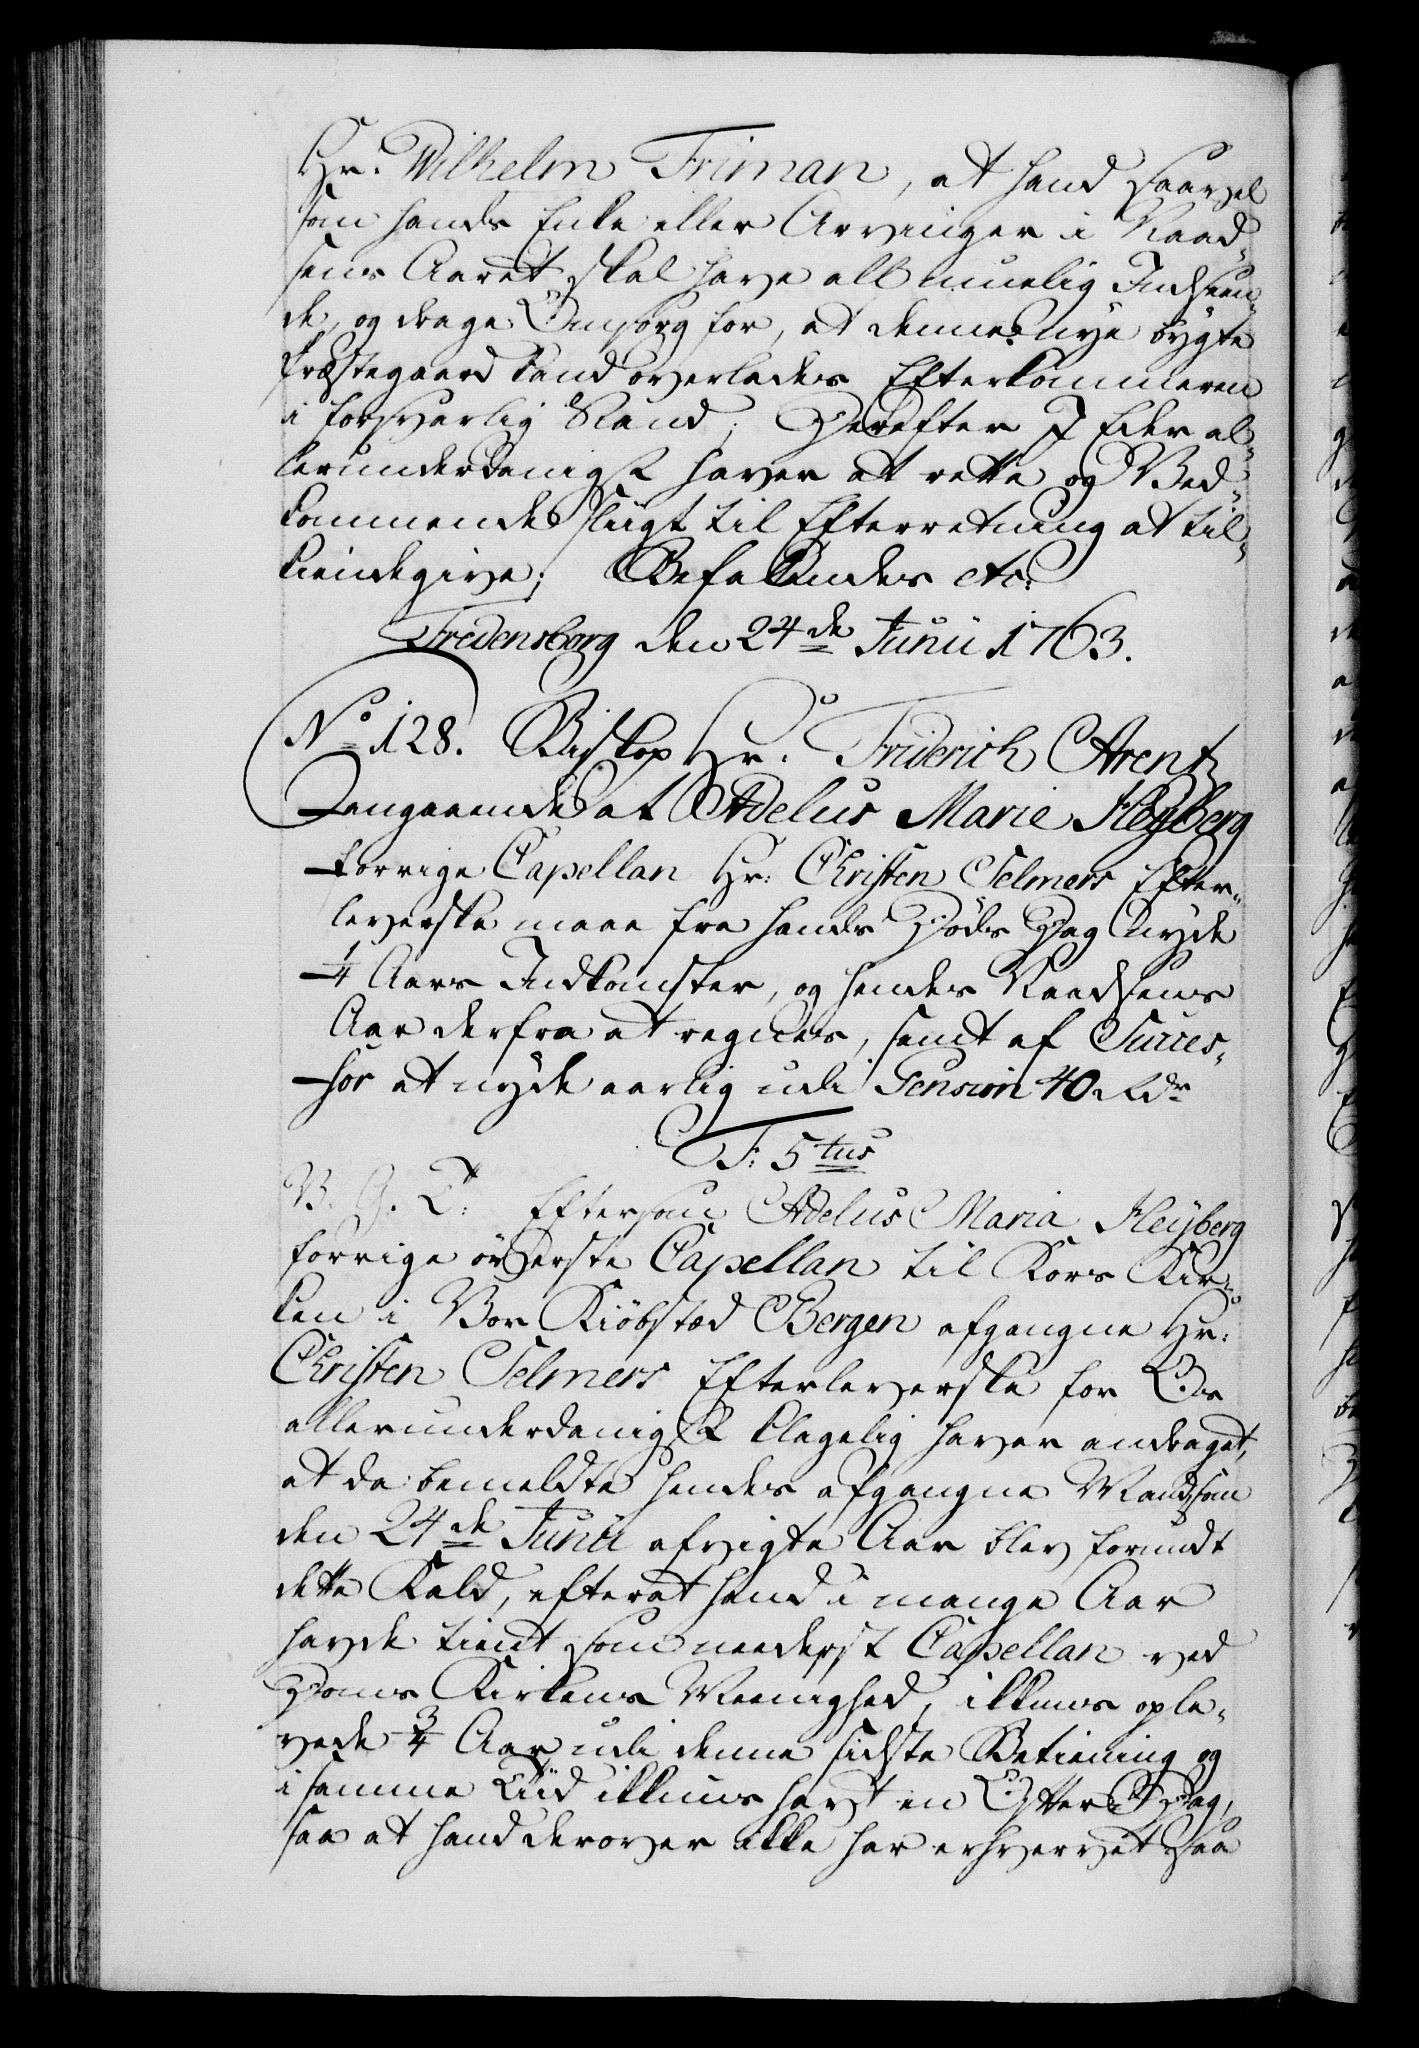 Hr. Wilhelm Friman, at hand saavel
som hands Enke eller Arvinger i Naad-
sens Aaret skal have all muelig Indseen-
de, og drage Omsorg for, at denne nye bygte
Præstegaard kand overlades Efterkommeren
i forsvarlig Stand; Derefter I Eder al-
lerunderdanigst haver at rette og Ved-
kommende sligt til Efterretning at til-
kiendegive; Befalendes etc.
Fredensborg den 24de Junii 1763.
No 128. Biskop Hr. Friderich Arentz
Angaaende at Adelus Marie Heyberg
forrige Capellan Hr: Christen Selmers Efter-
leverske maae fra hands Døds Dag nyde
1/4 Aars Indkomster, og hendes Naadsens
Aar derfra at regnes, samt af Succes-
sor at nyde aarlig udi Pension 40 Rdr
F: 5tus
V. G. T. Eftersom Adelus Maria Heyberg
forrige øverste Capellan til Kors Kir-
ken i Vor Kiøbstæd Bergen afgangne Hr:
Christen Selmers Efterleverske for Os
allerunderdanigst klagelig haver andraget,
at da bemeldte hendes afgangne Mand som
den 24de Junii afvigte Aar blev forundt
dette Kald, efter at hand i mange Aar
havde tient som nederst Capellan ved
Doms Kirkens Meenighed, ikkuns ople-
vede 3/4 Aar udi denne sidste Betiening og
i samme Tiid ikkuns havt en Offer Dag,
saa at hand derover ikke har erhvervet saa